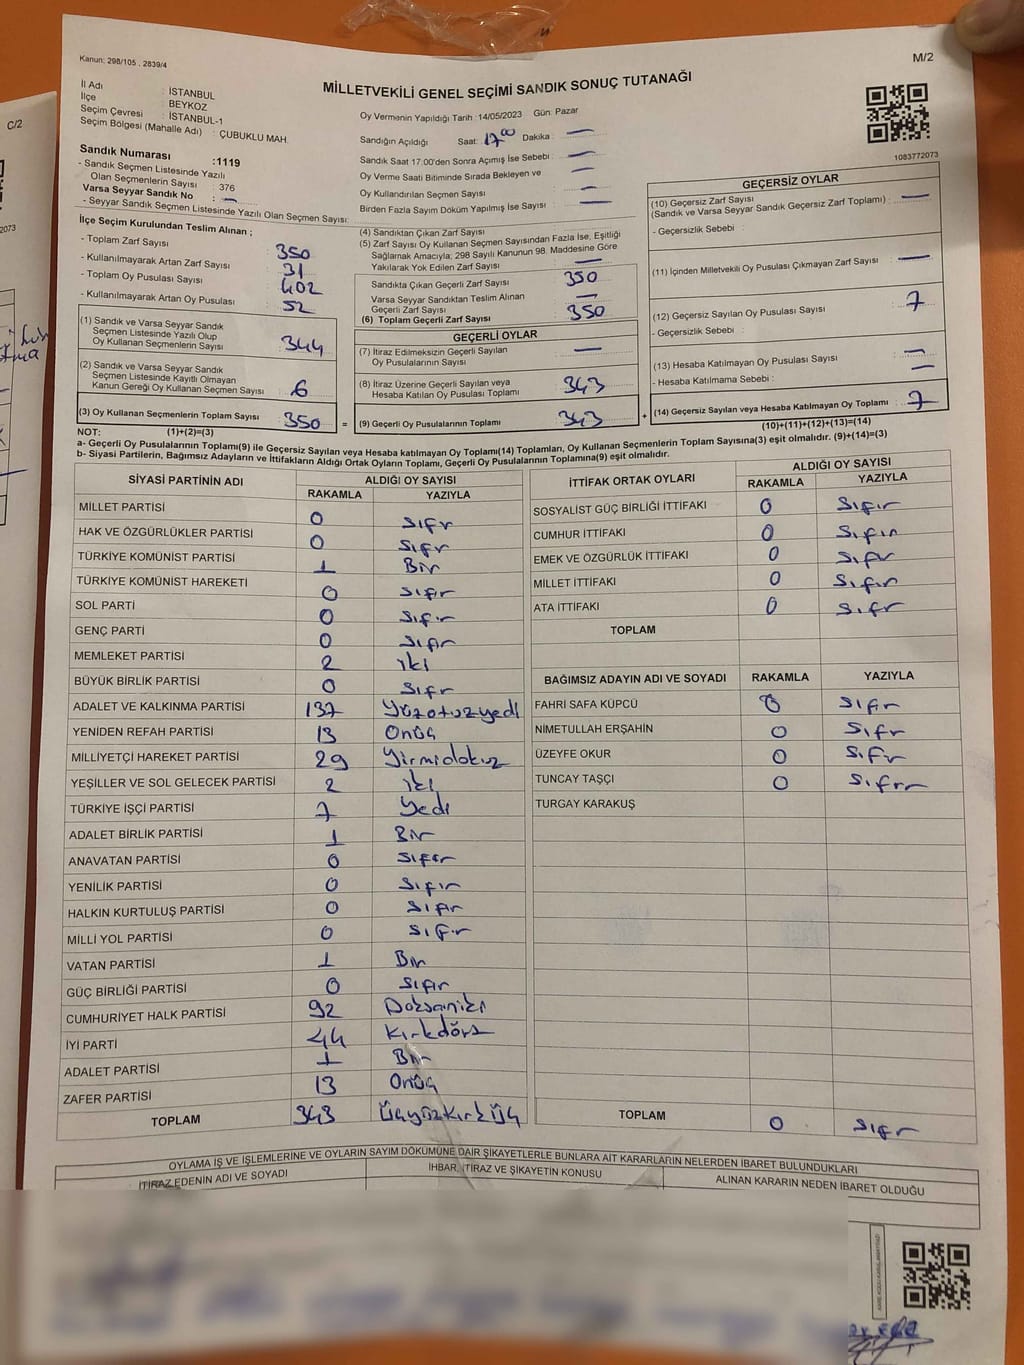 Kanun: 298/105 , 2839/4
M/2
C/2
MİLLETVEKİLİ GENEL SEÇİMİ SANDIK SONUÇ TUTANAĞI
İl Adı : İSTANBUL
İlçe : BEYKOZ
Seçim Çevresi : İSTANBUL-1
Seçim Bölgesi (Mahalle Adı) : ÇUBUKLU MAH.
Sandık Numarası :1119
- Sandık Seçmen Listesinde Yazılı
Olan Seçmenlerin Sayısı : 376
Varsa Seyyar Sandık No : —
- Seyyar Sandık Seçmen Listesinde Yazılı Olan Seçmen Sayısı:
Oy Vermenin Yapıldığı Tarih : 14/05/2023 Gün: Pazar
Sandığın Açıldığı Saat: 17 00 Dakika : —
Sandık Saat 17:00'den Sonra Açımış İse Sebebi : —
Oy Verme Saati Bitiminde Sırada Bekleyen ve —
Oy Kullandırılan Seçmen Sayısı : —
Birden Fazla Sayım Döküm Yapılmış İse Sayısı : —
1083772073
2073
İlçe Seçim Kurulundan Teslim Alınan ;
- Toplam Zarf Sayısı : 350
- Kullanılmayarak Artan Zarf Sayısı : 31
- Toplam Oy Pusulası Sayısı : 402
- Kullanılmayarak Artan Oy Pusulası : 52
(1) Sandık ve Varsa Seyyar Sandık
Seçmen Listesinde Yazılı Olup
Oy Kullanan Seçmenlerin Sayısı : 344
(2) Sandık ve Varsa Seyyar Sandık
Seçmen Listesinde Kayıtlı Olmayan
Kanun Gereği Oy Kullanan Seçmen Sayısı : 6
(3) Oy Kullanan Seçmenlerin Toplam Sayısı : 350 =
(1)+(2)=(3)
(4) Sandıktan Çıkan Zarf Sayısı :
(5) Zarf Sayısı Oy Kullanan Seçmen Sayısından Fazla İse, Eşitliği
Sağlamak Amacıyla; 298 Sayılı Kanunun 98. Maddesine Göre
Yakılarak Yok Edilen Zarf Sayısı : —
Sandıkta Çıkan Geçerli Zarf Sayısı : 350
Varsa Seyyar Sandıktan Teslim Alınan
Geçerli Zarf Sayısı : —
(6) Toplam Geçerli Zarf Sayısı : 350
GEÇERLİ OYLAR
(7) İtiraz Edilmeksizin Geçerli Sayılan
Oy Pusulalarının Sayısı : —
(8) İtiraz Üzerine Geçerli Sayılan veya
Hesaba Katılan Oy Pusulası Toplamı : 343
(9) Geçerli Oy Pusulalarının Toplamı : 343 +
GEÇERSİZ OYLAR
(10) Geçersiz Zarf Sayısı
(Sandık ve Varsa Seyyar Sandık Geçersiz Zarf Toplamı) : —
- Geçersizlik Sebebi :
(11) İçinden Milletvekili Oy Pusulası Çıkmayan Zarf Sayısı : —
(12) Geçersiz Sayılan Oy Pusulası Sayısı : 7
- Geçersizlik Sebebi :
(13) Hesaba Katılmayan Oy Pusulası Sayısı : —
- Hesaba Katılmama Sebebi : —
(14) Geçersiz Sayılan veya Hesaba Katılmayan Oy Toplamı : 7
(10)+(11)+(12)+(13)=(14)
NOT:
a- Geçerli Oy Pusulalarının Toplamı(9) ile Geçersiz Sayılan veya Hesaba katılmayan Oy Toplamı(14) Toplamları, Oy Kullanan Seçmenlerin Toplam Sayısına(3) eşit olmalıdır. (9)+(14)=(3)
b- Siyasi Partilerin, Bağımsız Adayların ve İttifakların Aldığı Ortak Oyların Toplamı, Geçerli Oy Pusulalarının Toplamına(9) eşit olmalıdır.
SİYASİ PARTİNİN ADI ALDIĞI OY SAYISI
RAKAMLA YAZIYLA
MİLLET PARTİSİ 0 Sıfır
HAK VE ÖZGÜRLÜKLER PARTİSİ 0 Sıfır
TÜRKİYE KOMÜNİST PARTİSİ 1 Bir
TÜRKİYE KOMÜNİST HAREKETİ 0 Sıfır
SOL PARTİ 0 Sıfır
GENÇ PARTİ 0 Sıfır
MEMLEKET PARTİSİ 2 iki
BÜYÜK BİRLİK PARTİSİ 0 Sıfır
ADALET VE KALKINMA PARTİSİ 137 Yüzotuzyedi
YENİDEN REFAH PARTİSİ 13 Onüç
MİLLİYETÇİ HAREKET PARTİSİ 29 Yirmidokuz
YEŞİLLER VE SOL GELECEK PARTİSİ 2 iki
TÜRKİYE İŞÇİ PARTİSİ 7 Yedi
ADALET BİRLİK PARTİSİ 1 Bir
ANAVATAN PARTİSİ 0 Sıfır
YENİLİK PARTİSİ 0 Sıfır
HALKIN KURTULUŞ PARTİSİ 0 Sıfır
MİLLİ YOL PARTİSİ 0 Sıfır
VATAN PARTİSİ 1 Bir
GÜÇ BİRLİĞİ PARTİSİ 0 Sıfır
CUMHURİYET HALK PARTİSİ 92 Doksaniki
İYİ PARTİ 44 Kırkdört
ADALET PARTİSİ 1 Bir
ZAFER PARTİSİ 13 Onüç
TOPLAM 343 ÜçyüzkırkÜç
İTTİFAK ORTAK OYLARI ALDIĞI OY SAYISI
RAKAMLA YAZIYLA
SOSYALİST GÜÇ BİRLİĞİ İTTİFAKI 0 Sıfır
CUMHUR İTTİFAKI 0 Sıfır
EMEK VE ÖZGÜRLÜK İTTİFAKI 0 Sıfır
MİLLET İTTİFAKI 0 Sıfır
ATA İTTİFAKI 0 Sıfır
TOPLAM
BAĞIMSIZ ADAYIN ADI VE SOYADI RAKAMLA YAZIYLA
FAHRİ SAFA KÜPCÜ 0 Sıfır
NİMETULLAH ERŞAHİN 0 Sıfır
ÜZEYFE OKUR 0 Sıfır
TUNCAY TAŞÇI 0 Sıfır
TURGAY KARAKUŞ
TOPLAM 0 Sıfır
OYLAMA İŞ VE İŞLEMLERİNE VE OYLARIN SAYIM DÖKÜMÜNE DAİR ŞİKAYETLERLE BUNLARA AİT KARARLARIN NELERDEN İBARET BULUNDUKLARI
İTİRAZ EDENİN ADI VE SOYADI İHBAR, İTİRAZ VE ŞİKAYETİN KONUSU ALINAN KARARIN NEDEN İBARET OLDUĞU